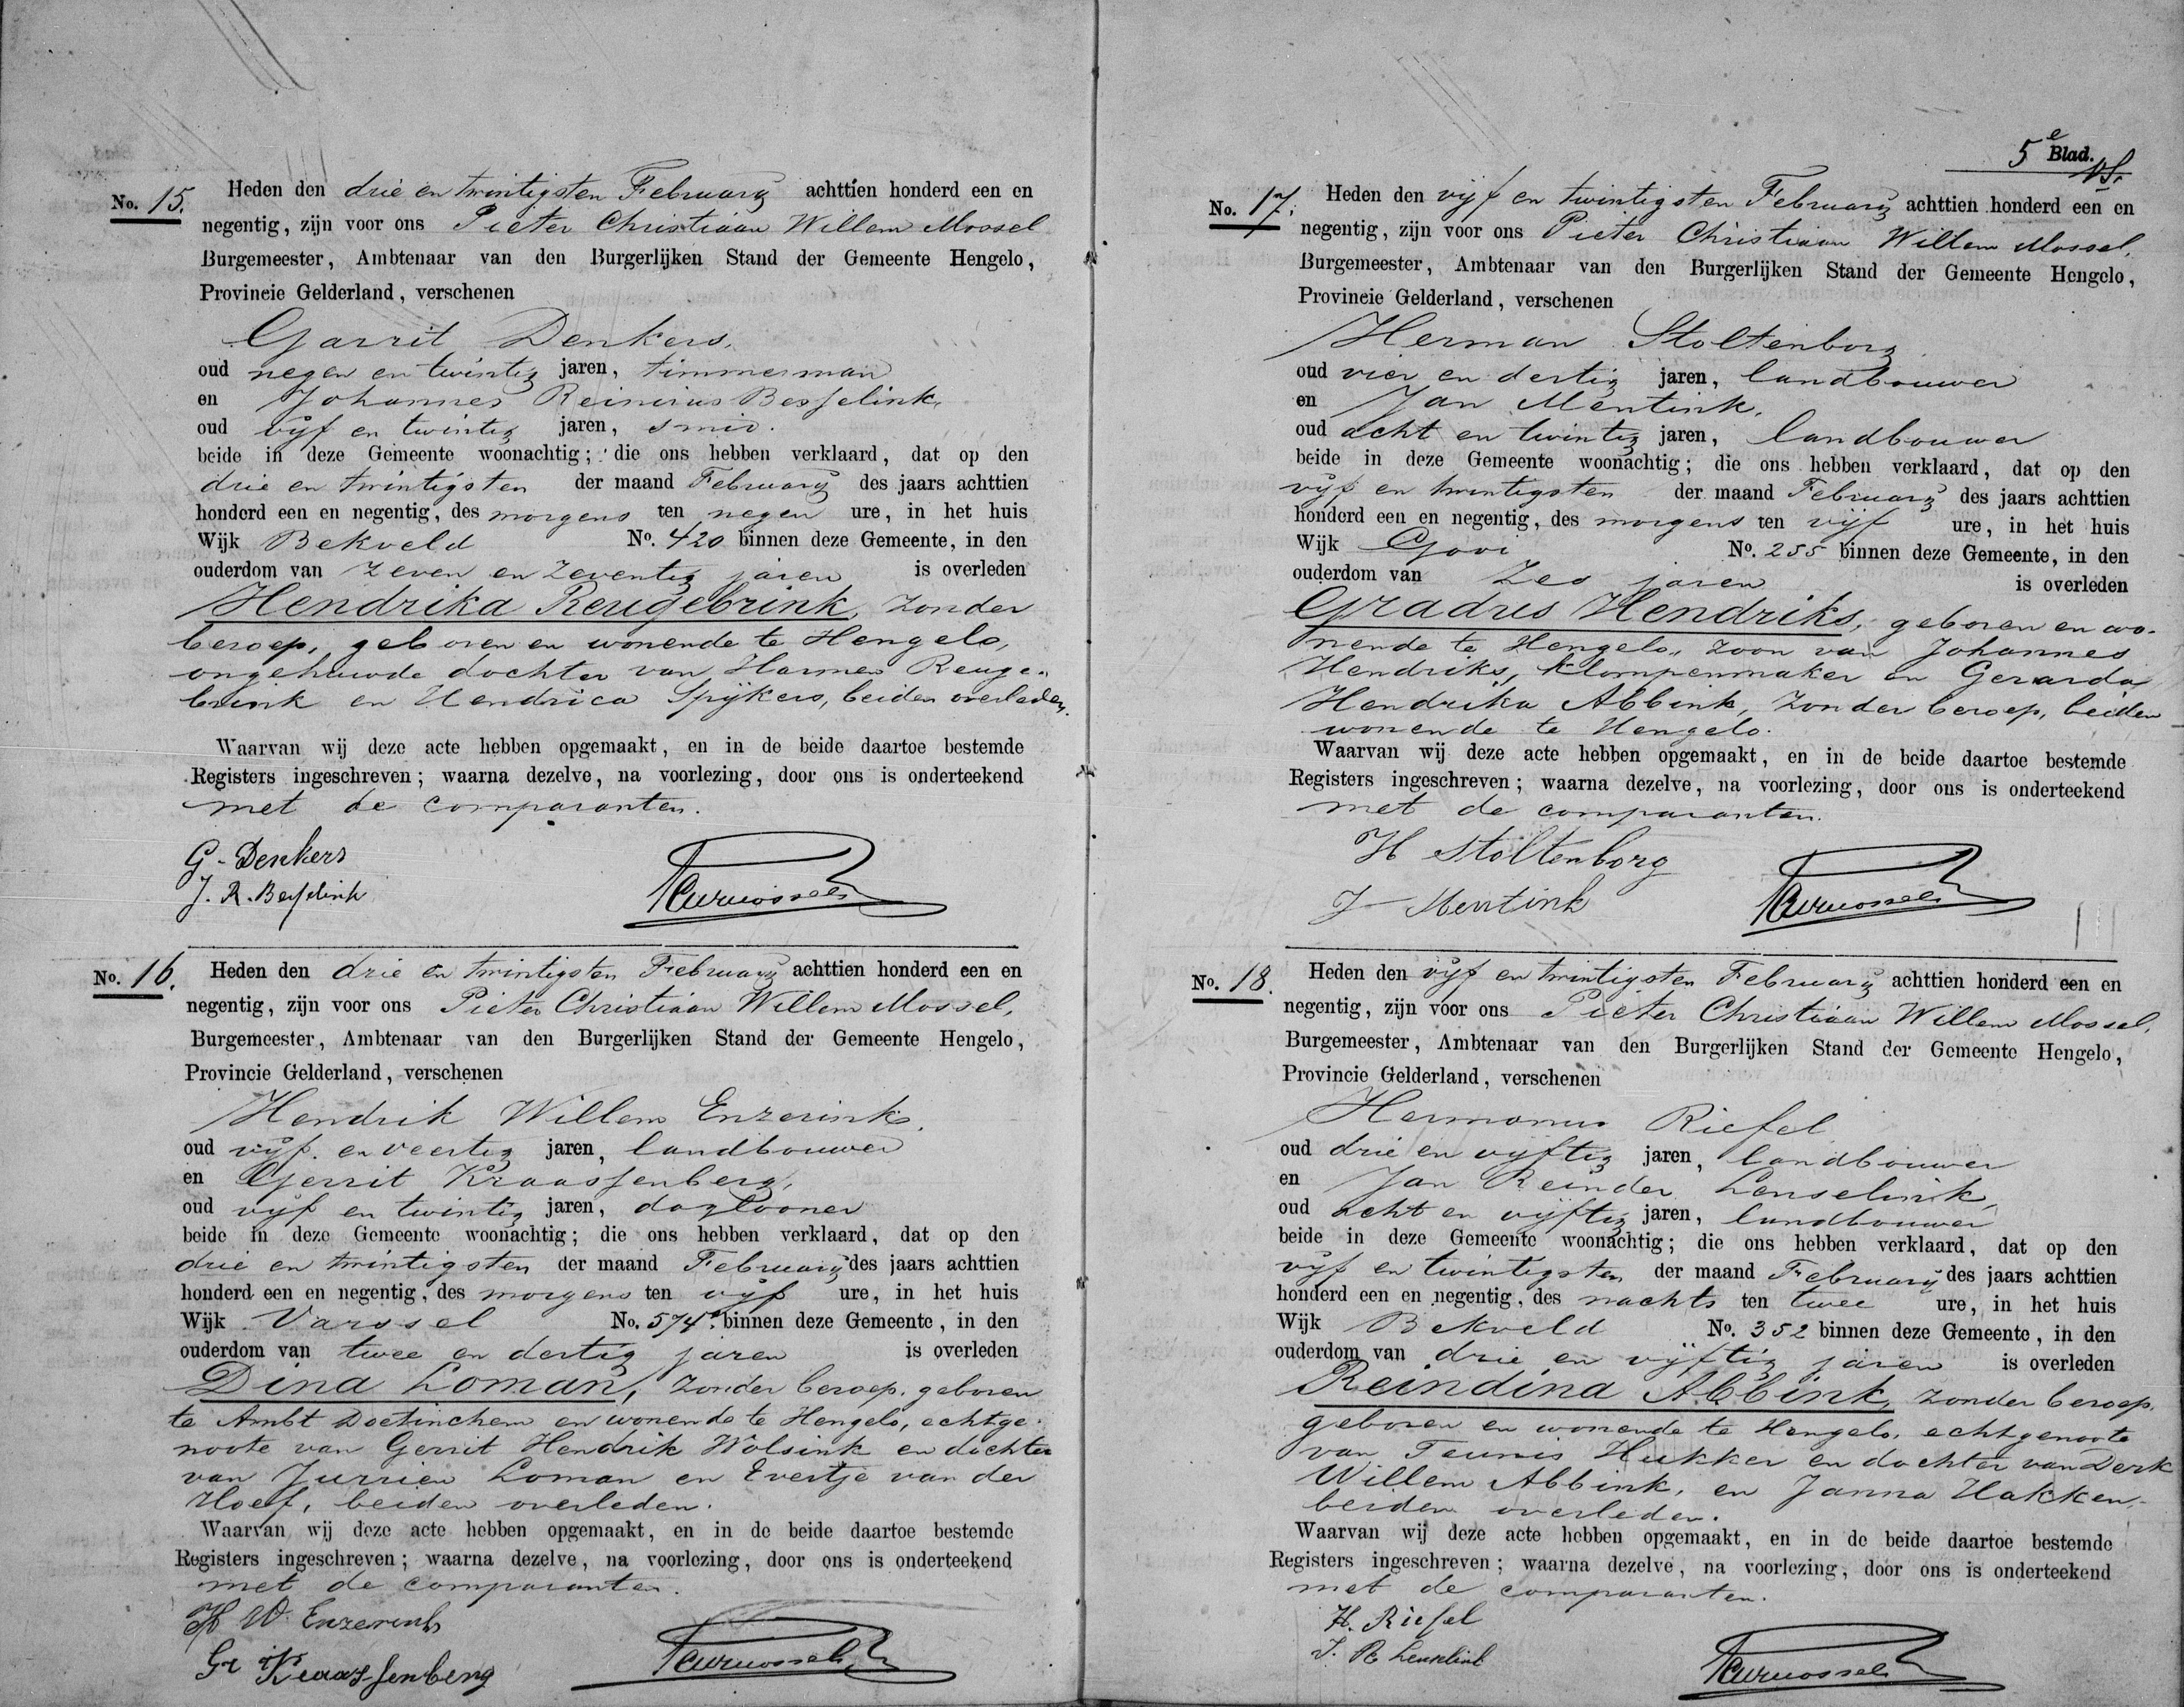 No. 15.
Heden den drie en twintigsten February achttien honderd een en
negentig, zijn voor ons Pieter Christiaan Willem Mossel
Burgemeester, Ambtenaar van den Burgerlijken Stand der Gemeente Hengelo,
Provincie Gelderland, verschenen
Garrit Denkers,
oud negen en twintig jaren, timmerman
en Johannes Reinirius Besselink,
oud vijf en twintig jaren, smid.
beide in deze Gemeente woonachtig; die ons hebben verklaard, dat op den
drie en twintigsten der maand February des jaars achttien
honderd een en negentig, des morgens ten negen ure, in het huis
Wijk Bekveld No. 420 binnen deze Gemeente, in den
ouderdom van zeven en zeventig jaren is overleden
Hendrika Reugebrink, zonder
beroep, geboren en wonende te Hengelo,
ongehuwde dochter van Harmen Reuge-
brink en Hendrica Spijkers, beiden overleden.
Waarvan wij deze acte hebben opgemaakt, en in de beide daartoe bestemde
Registers ingeschreven; waarna dezelve, na voorlezing, door ons is onderteekend
met de comparanten.
G. Denkers
J. R. Besselink
PCWMossel
No. 16.
Heden den drie en twintigsten February achttien honderd een en
negentig, zijn voor ons Pieter Christiaan Willem Mossel,
Burgemeester, Ambtenaar van den Burgerlijken Stand der Gemeente Hengelo,
Provincie Gelderland, verschenen
Hendrik Willem Enzerink,
oud vijf en veertig jaren, landbouwer
en Gerrit Kraassenberg,
oud vijf en twintig jaren, daglooner
beide in deze Gemeente woonachtig; die ons hebben verklaard, dat op den
drie en twintigsten der maand February des jaars achttien
honderd een en negentig, des morgens ten vijf ure, in het huis
Wijk Varssel No. 574a binnen deze Gemeente, in den
ouderdom van twee en dertig jaren is overleden
Dina Loman, zonder beroep, geboren
te Ambt Doetinchem en wonende te Hengelo, echtge-
noote van Gerrit Hendrik Wolsink en dochter
van Jurrien Loman en Evertje van der
Hoef, beiden overleden.
Waarvan wij deze acte hebben opgemaakt, en in de beide daartoe bestemde
Registers ingeschreven; waarna dezelve, na voorlezing, door ons is onderteekend
met de comparanten.
H W Enzerink
Gr Kraassenberg
PCWMossel
5e Blad.
No. 17.
Heden den vijf en twintigsten February achttien honderd een en
negentig, zijn voor ons Pieter Christiaan Willem Mossel,
Burgemeester, Ambtenaar van den Burgerlijken Stand der Gemeente Hengelo,
Provincie Gelderland, verschenen
Herman Stoltenborg
oud vier en dertig jaren, landbouwer
en Jan Mentink,
oud acht en twintig jaren, landbouwer
beide in deze Gemeente woonachtig; die ons hebben verklaard, dat op den
vijf en twintigsten der maand February des jaars achttien
honderd een en negentig, des morgens ten vijf ure, in het huis
Wijk Gooi No. 255 binnen deze Gemeente, in den
ouderdom van zes jaren is overleden
Gradus Hendriks, geboren en wo-
nende te Hengelo, zoon van Johannes
Hendriks, klompenmaker en Gerarda
Hendrika Abbink, zonder beroep, beiden
wonende te Hengelo.
Waarvan wij deze acte hebben opgemaakt, en in de beide daartoe bestemde
Registers ingeschreven; waarna dezelve, na voorlezing, door ons is onderteekend
met de comparanten.
H Stoltenborg
J Mentink
PCWMossel
No. 18.
Heden den vijf en twintigsten February achttien honderd een en
negentig, zijn voor ons Pieter Christiaan Willem Mossel,
Burgemeester, Ambtenaar van den Burgerlijken Stand der Gemeente Hengelo,
Provincie Gelderland, verschenen
Hermanus Riefel
oud drie en vijftig jaren, landbouwer
en Jan Reinder Lenselink,
oud acht en vijftig jaren, landbouwer
beide in deze Gemeente woonachtig; die ons hebben verklaard, dat op den
vijf en twintigsten der maand February des jaars achttien
honderd een en negentig, des nachts ten twee ure, in het huis
Wijk Bekveld No. 352 binnen deze Gemeente, in den
ouderdom van drie en vijftig jaren is overleden
Reindina Abbink, zonder beroep,
geboren en wonende te Hengelo, echtgenoote
van Teunis Hukker en dochter van Derk
Willem Abbink, en Janna Hakken,
beiden overleden.
Waarvan wij deze acte hebben opgemaakt, en in de beide daartoe bestemde
Registers ingeschreven; waarna dezelve, na voorlezing, door ons is onderteekend
met de comparanten.
H. Riefel
J. R Lenselink
PCWMossel